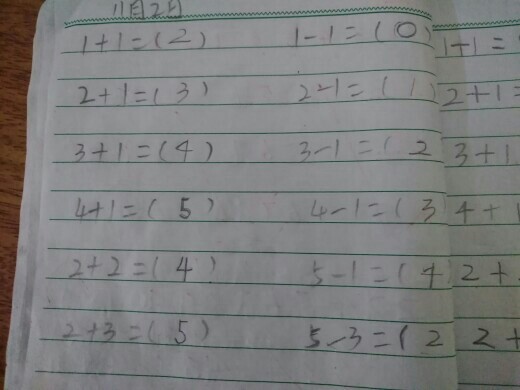 11月2日
1+1=(2) 1-1=(0) 1+1=
2+1=(3) 2-1=(1) 2+1=
3+1=(4) 3-1=(2 3+1
4+1=(5) 4-1=(3) 4+1
2+2=(4) 5-1=(4) 2+
2+3=(5) 5-3=(2 2+